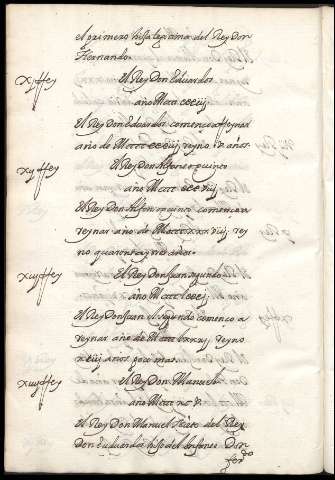 el primero hijo legitimo del Rey Don
Fernando.
xj Rey
El Rey Don Eduardo
año
El Rey Don Eduarda comenco a Reynar
año de reyno v años.
xij Rey
El Rey Don Alfonso quinto
año
El Rey Don Alfon quinto comenco a
reynar año de Mcccc xxxviij rey
no quarenta y tres años.
xiij Rey
El Rey Don Juan segundo
año
El Rey Don Juan el segundo comenco a
reynar año de lxxxj reyno
xiiij años poco mas.
xiiij Rey
El Rey Don Manuel
año
El Rey Don Manuel Nieto del Rey
Don Euduarda hijo del Infante Don
fer do